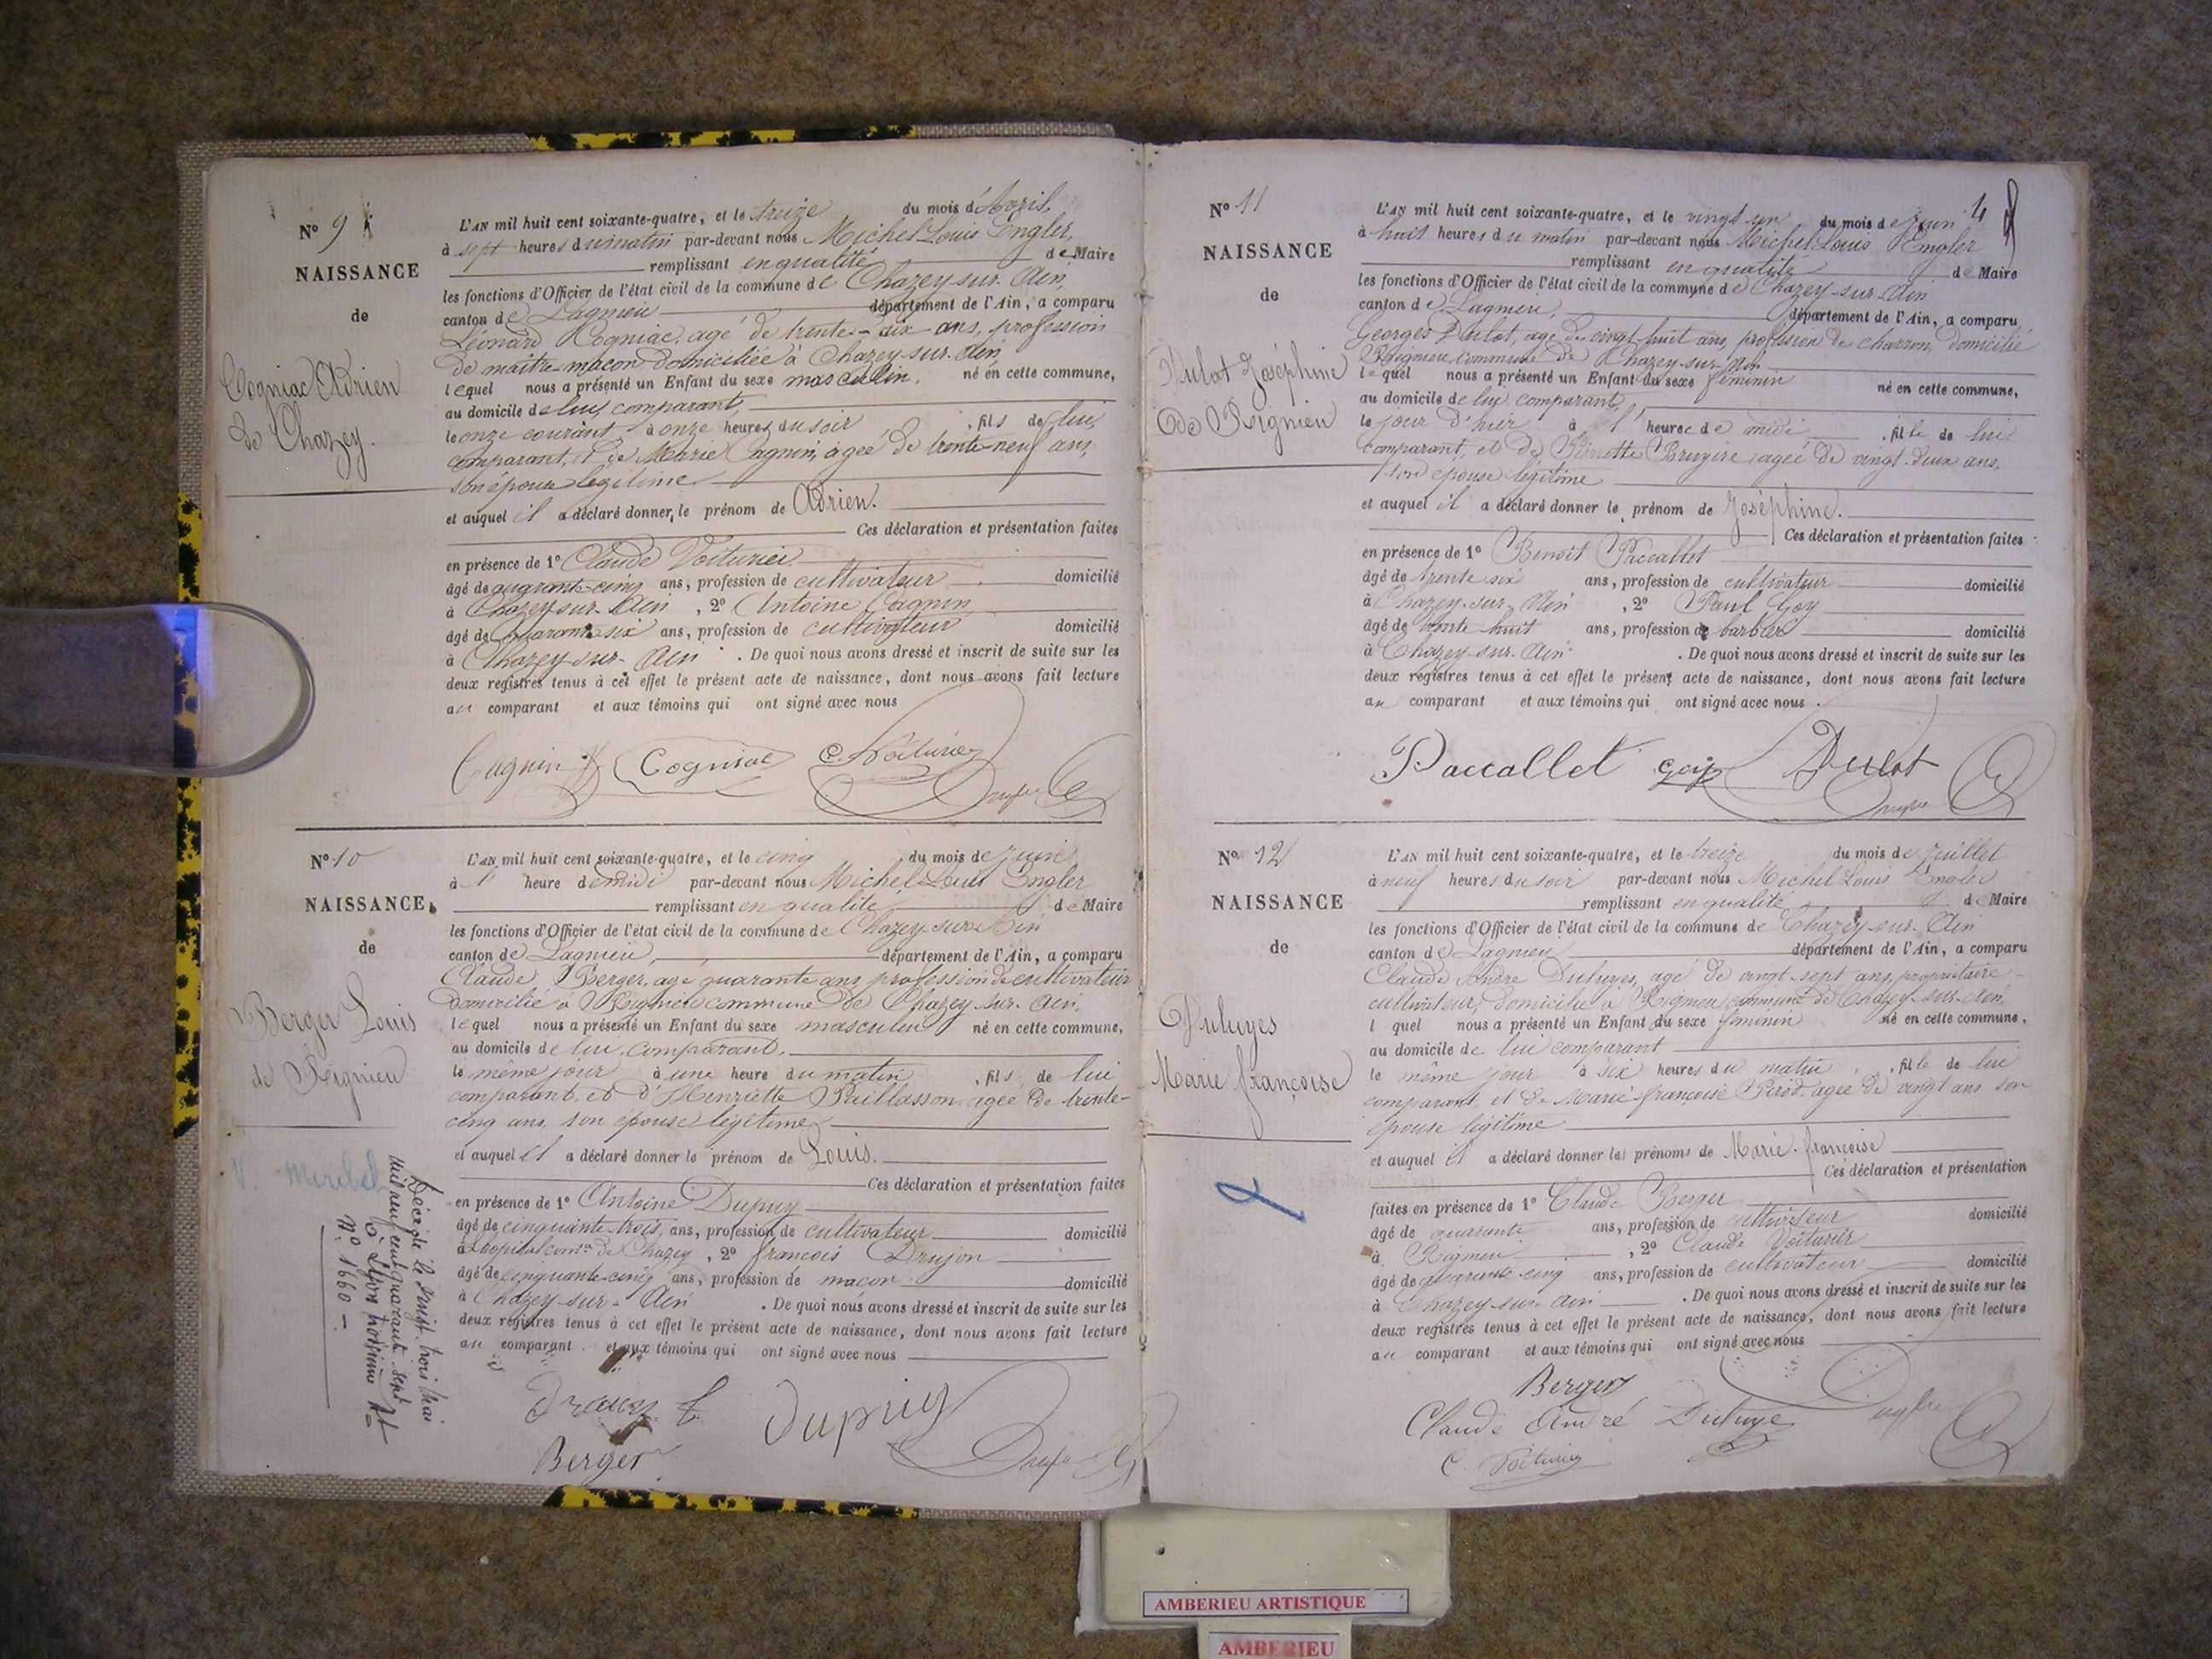 N° 9
NAISSANCE
de
Cogniac Adrien
de Chazey.
L'AN mil huit cent soixante-quatre, et le treize du mois d'Avril,
à sept heures du matin par-devant nous Michel Louis Engler,
remplissant en qualité de Maire
les fonctions d'Officier de l'état civil de la commune de Chazey-sur-Ain,
canton de Lagnieu département de l'Ain, a comparu
Léonard Cogniac, agé de trente-six ans, profession
de maître-maçon domiciliée à Chazey-sur-Ain,
lequel nous a présenté un Enfant du sexe masculin, né en cette commune,
au domicile de lui, comparant,
le onze courant à onze heures du soir, fils de lui,
comparant, et de Marie Cagnin, agée de trente-neuf ans,
son épouse légitime
et auquel il a déclaré donner, le prénom de Adrien.
Ces déclaration et présentation faites
en présence de 1° Claude Voiturier
âgé de quarante-cinq ans, profession de cultivateur domicilié
à Chazey-sur-Ain, 2° Antoine Cagnin
âgé de quarante six ans, profession de cultivateur domicilié
à Chazey-sur-Ain. De quoi nous avons dressé et inscrit de suite sur les
deux registres tenus à cet effet le présent acte de naissance, dont nous avons fait lecture
au comparant et aux témoins qui ont signé avec nous
Cagnin Cogniac C. Voiturier
N° 10
NAISSANCE
de
Berger Louis
de Rignieu
V. Miribel
Décédé le trois Mai
mil neuf cent quarante sept
à Lyon troisième At
N° 1660 -
L'AN mil huit cent soixante-quatre, et le cinq du mois de juin
à l' heure de midi par-devant nous Michel Louis Engler
remplissant en qualité de Maire
les fonctions d'Officier de l'état civil de la commune de Chazey-sur-Ain
canton de Lagnieu, département de l'Ain, a comparu
Claude Berger, agé quarante ans, profession de cultivateur
domicilié à Rignieu commune de Chazey-sur-Ain,
lequel nous a présenté un Enfant du sexe masculin né en cette commune,
au domicile de lui, comparant,
le même jour à une heure du matin, fils de lui
comparant, et d'Henriette Paillasson agée de trente-
cinq ans, son épouse légitime
et auquel il a déclaré donner le prénom de Louis.
Ces déclaration et présentation faites
en présence de 1° Antoine Dupuy
âgé de cinquante-trois ans, profession de cultivateur domicilié
à L'hopital comne de Chazey, 2° françois Drujon
âgé de cinquante-cinq ans, profession de maçon domicilié
à Chazey-sur-Ain. De quoi nous avons dressé et inscrit de suite sur les
deux registres tenus à cet effet le présent acte de naissance, dont nous avons fait lecture
au comparant et aux témoins qui ont signé avec nous
Dupuy
Berger
4
N° 11
NAISSANCE
de
Dulot Joséphine
de Rignieu
L'AN mil huit cent soixante-quatre, et le vingt un du mois de juin
à huit heures du matin par-devant nous Michel Louis Engler
remplissant en qualité de Maire
les fonctions d'Officier de l'état civil de la commune de Chazey-sur-Ain
canton de Lagnieu, département de l'Ain, a comparu
Georges Dulot, age de vingt-huit ans, profession de charron, domicilié
Rignieu commune de Chazey-sur-Ain
lequel nous a présenté un Enfant du sexe féminin né en cette commune,
au domicile de lui comparant,
le jour d'hier à l' heure de midi, fille de lui
comparant, et de Pierrette Bruyère agée de vingt-deux ans,
son épouse légitime
et auquel il a déclaré donner le prénom de Joséphine.
Ces déclaration et présentation faites
en présence de 1° Benoit Paccallet
âgé de trente six ans, profession de cultivateur domicilié
à Chazey-sur-Ain, 2° Paul Goy
âgé de trente huit ans, profession de barbier domicilié
à Chazey-sur-Ain. De quoi nous avons dressé et inscrit de suite sur les
deux registres tenus à cet effet le présent acte de naissance, dont nous avons fait lecture
au comparant et aux témoins qui ont signé avec nous.
Paccallet goy Dulot
N° 12
NAISSANCE
de
Duluyes
Marie françoise
L'AN mil huit cent soixante-quatre, et le treize du mois de juillet
à neuf heures du soir par-devant nous Michel Louis Engler
remplissant en qualité de Maire
les fonctions d'Officier de l'état civil de la commune de Chazey-sur-Ain
canton de Lagnieu département de l'Ain, a comparu
Claude André Duluyes, agé de vingt-sept ans, propriétaire-
cultivateur, domicilié à Rignieu commune de Chazey-sur-Ain,
l quel nous a présenté un Enfant du sexe féminin né en cette commune,
au domicile de lui comparant
le même jour à six heures du matin, fille de lui
comparant, et de Marie-françoise agée de vingt ans son
épouse légitime
et auquel il a déclaré donner les prénoms de Marie-françoise
Ces déclaration et présentation
faites en présence de 1° Claude Berger
âgé de quarante ans, profession de cultivateur domicilié
à Rignieu, 2° Claude Voiturier
âgé de quarante cinq ans, profession de cultivateur domicilié
à Chazey-sur-Ain. De quoi nous avons dressé et inscrit de suite sur les
deux registres tenus à cet effet le présent acte de naissance, dont nous avons fait lecture
au comparant et aux témoins qui ont signé avec nous
Berger
Claude André Duluye
C. Voiturier
AMBERIEU ARTISTIQUE
AMBERIEU